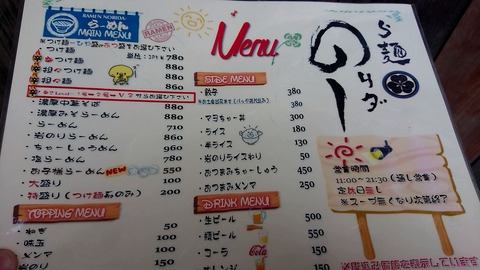 RAMEN NORIDA
らーめん
MAIN MENU
Menu
ら麺
のりダー
つけ麺 780
辛つけ麺 880
担々つけ麺 880
担々麺 860
濃厚中華そば 880
濃厚みそらーめん 880
らーめん 710
岩のりらーめん 860
ちゃーしゅうめん 960
塩らーめん 780
お子様らーめん NEW 550
大盛り 100
特盛り(つけ麺系のみ) 200
TOPPING MENU
ねぎ 50
味玉 100
メンマ 100
岩のり 150
SIDE MENU
餃子 380
380
マヨちゃー丼 300
ライス 180
半ライス 130
岩のりライスわり 50
おつまみちゃーしゅう 450
おつまみメンマ 250
DRINK MENU
生ビール 500
瓶ビール 550
コーラ 150
オレンジ 150
営業時間
11:00~21:30(通し営業)
定休日無し
※スープ無くなり次第終了